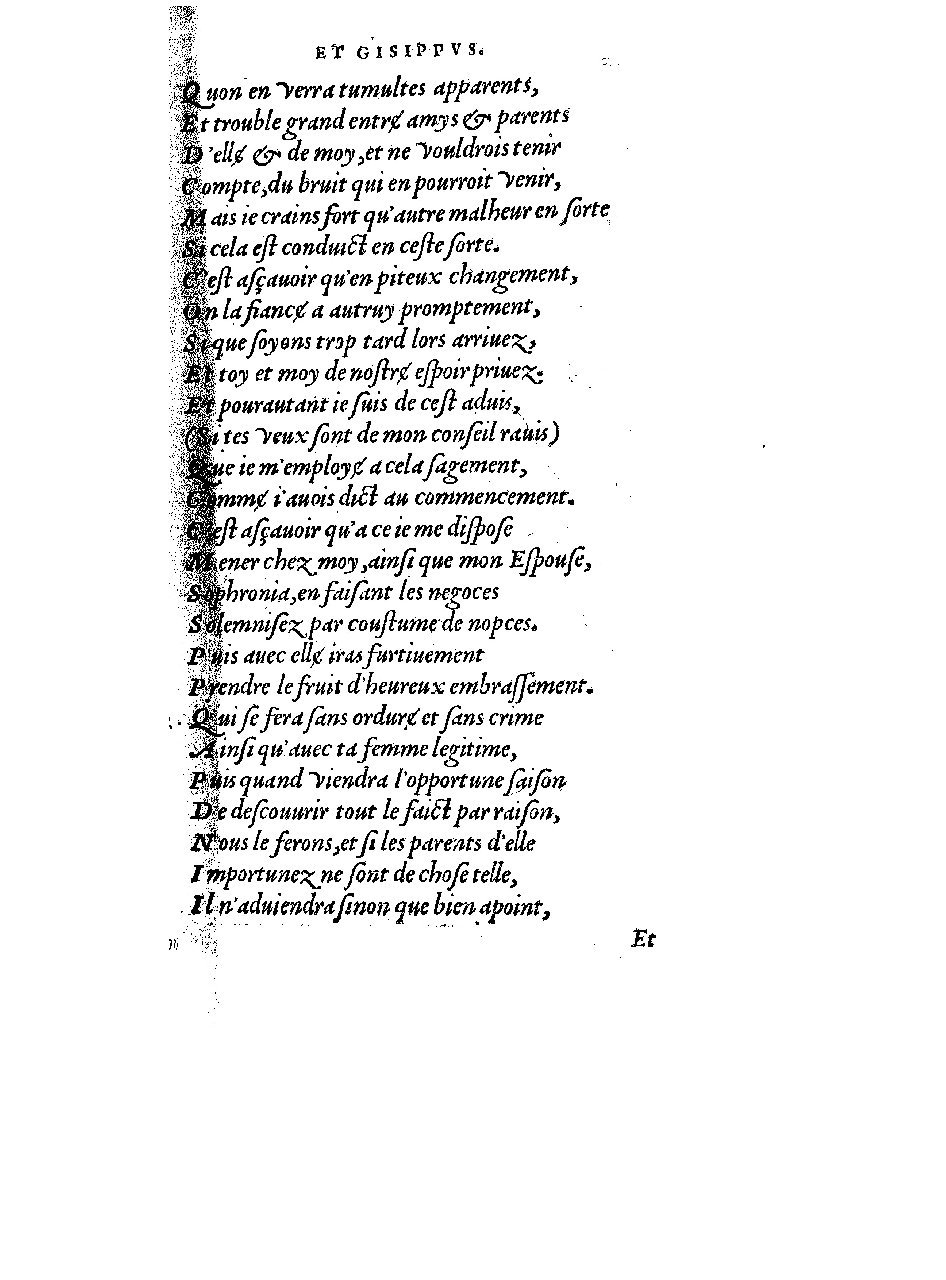 ET GISIPPVS.
Quon en verra tumultes apparents,
Et trouble grand entrɇ amys & parents
D'ellɇ & de moy, et ne vouldrois tenir
Compte, du bruit qui en pourroit venir,
Mais ie crains fort qu'autre malheur en ſorte
Si cela eſt conduict en ceſte ſorte.
C'eſt aſçauoir qu'en piteux changement,
On la fiancɇ a autruy promptement,
Si que ſoyons trop tard lors arriuez,
Et toy et moy de noſtrɇ eſpoir priuez.
Et pourautant ie ſuis de ceſt aduis,
(Si tes veux ſont de mon conſeil rauis)
Que ie m'employɇ a cela ſagement,
Commɇ i'auois dict au commencement.
C'eſt aſçauoir qu'a ce ie me diſpoſe
Mener chez moy, ainſi que mon Eſpouſe,
Sophronia, en faiſant les negoces
Solemniſez par couſtume de nopces.
Puis auec ellɇ iras furtiuement
Prendre le fruit d'heureux embraſſement.
Qui ſe fera ſans ordurɇ et ſans crime
Ainſi qu'auec ta femme legitime,
Puis quand viendra l'opportune ſaiſon
De deſcouurir tout le faict par raiſon,
Nous le ferons, et ſi les parents d'elle
Importunez ne ſont de choſe telle,
Il n'aduiendra ſinon que bien apoint,
Et